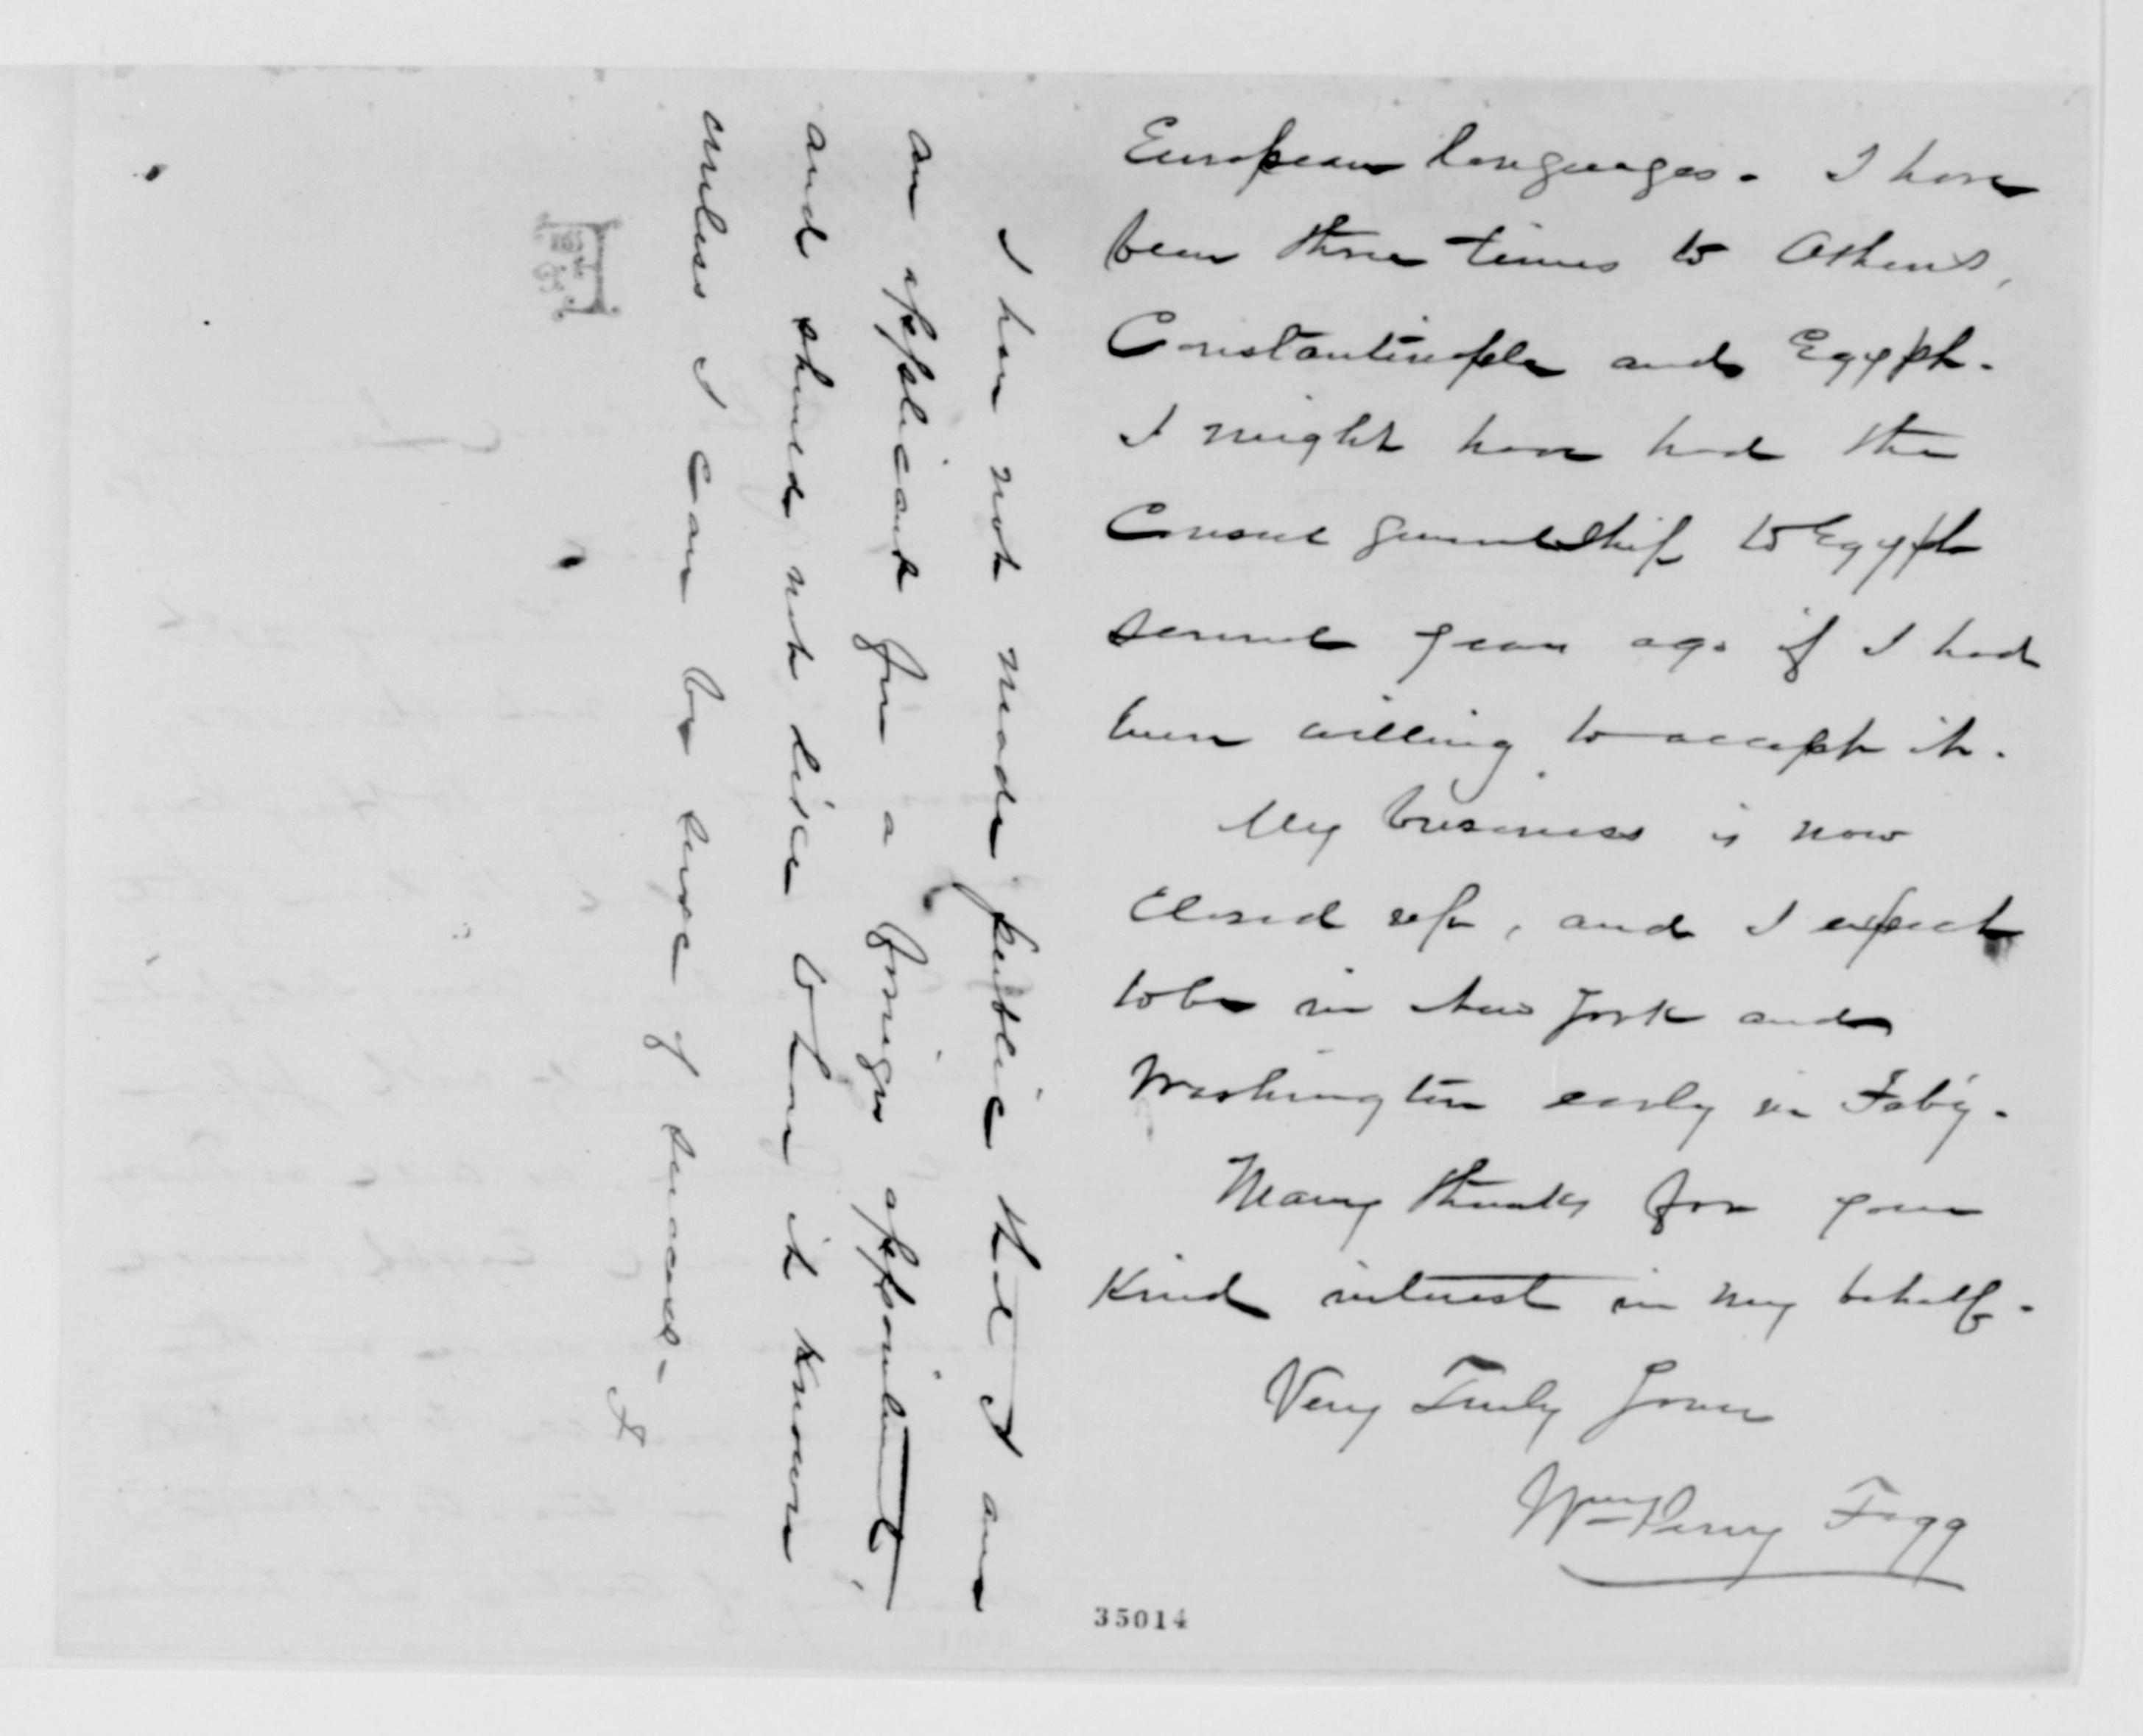 European languages. I have
been three times to Athens,
Constantinople and Egypt.
I might have had the
Consul Generalship to Egypt
several years ago if I had
been willing to accept it.
My business is now
closed up, and I expect
to be in New York and
Washington early in Feb'y.
Many thanks for your
kind interest in my behalf.
Very Truly Yours
Wm Perry Fogg
35014
I have not made public that I am
an applicant for a foreign appointment,
and should not like to have it known
unless I can be sure of success.
F